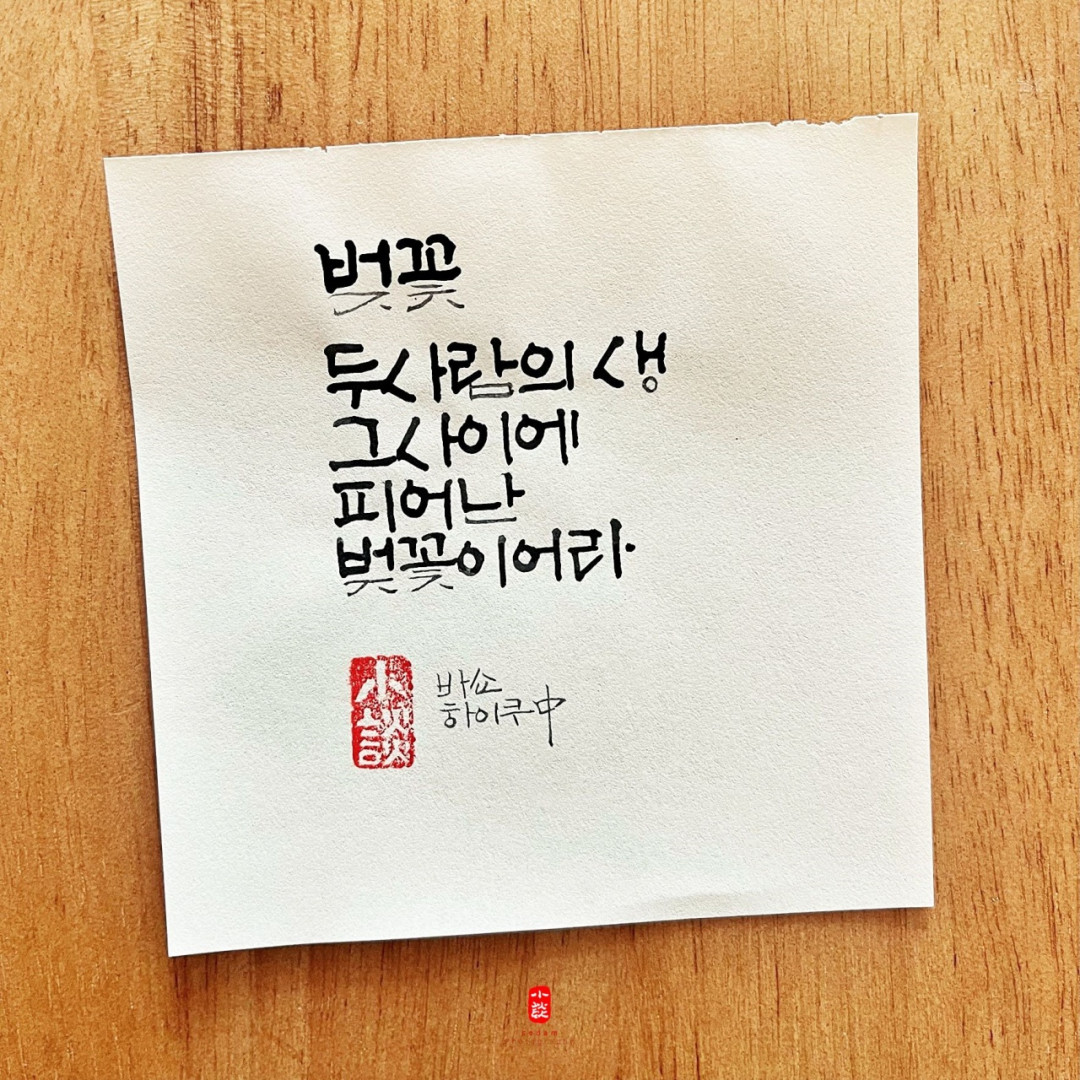 벚꽃
두사람의 생
그사이에
피어난
벚꽃이어라.
小談
바쇼
하이쿠中
小談